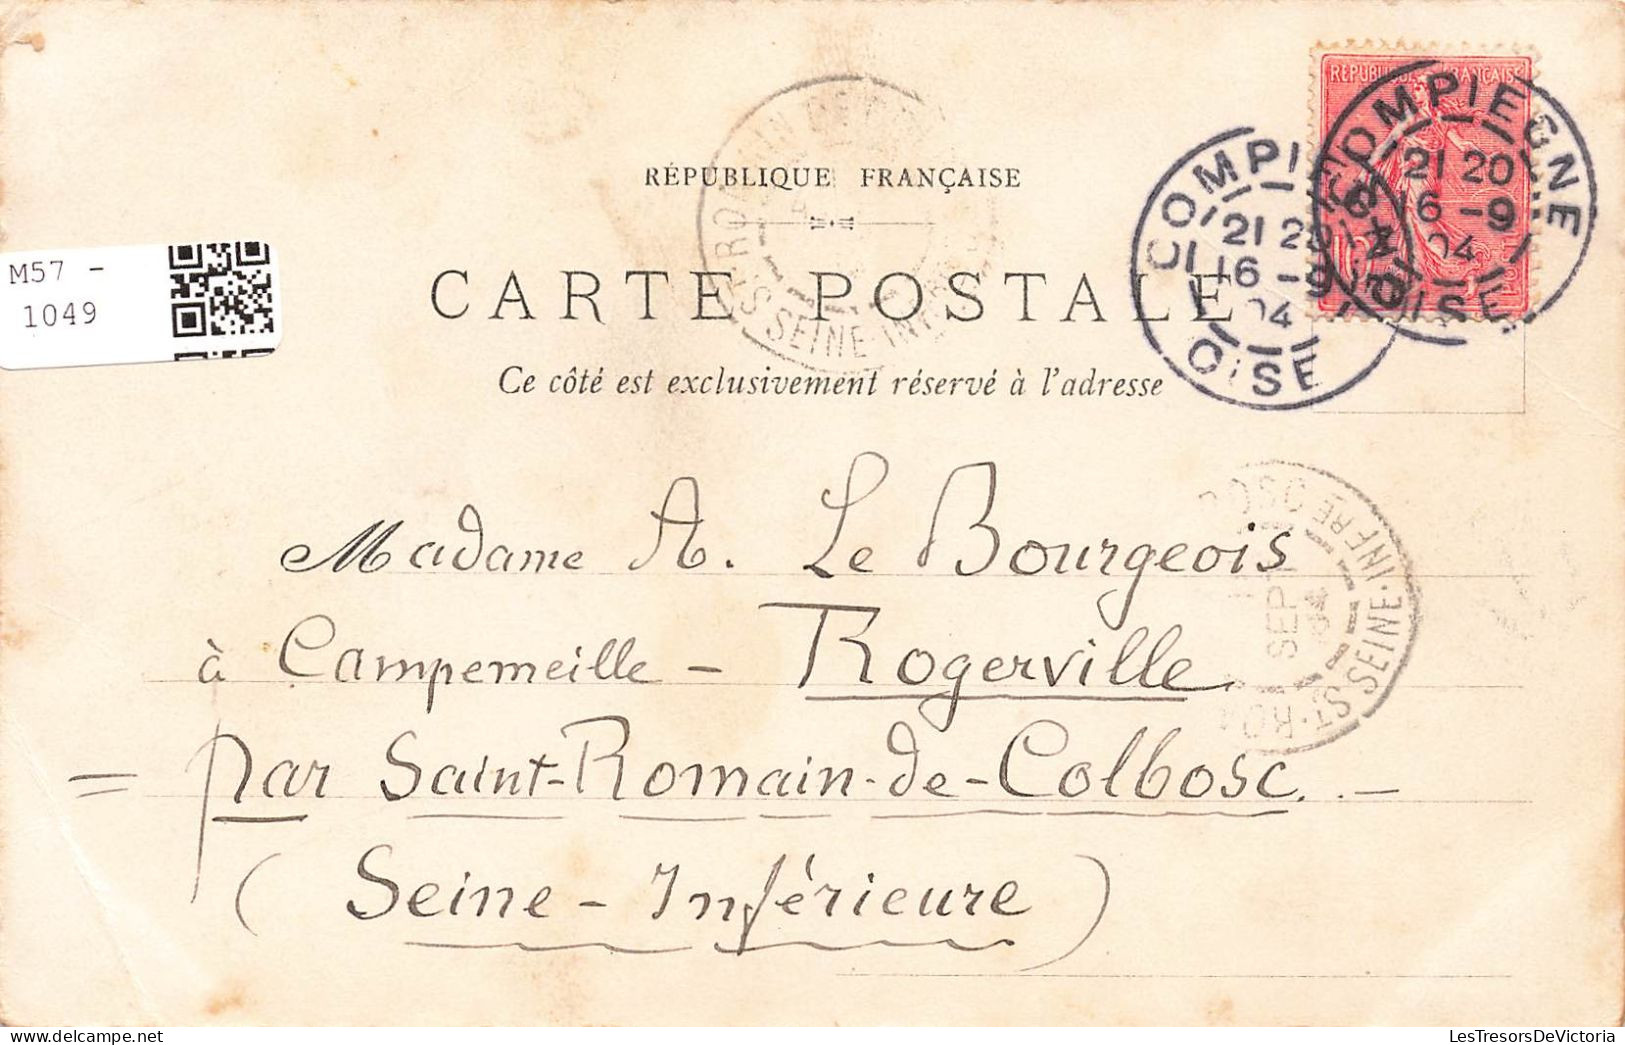 RÉPUBLIQUE FRANÇAISE
CARTE POSTALE
Ce côté est exclusivement réservé à l'adresse
M57 -
1049
REPUBLIQUE FRANÇAISE
COMPIEGNE
21 20
16 -9
04
OISE
COMPIEGNE
21 20
16 -9
04
OISE
SEINE-INFRE
COLBOSC
SEPT
04
SEINE-INFRE
Madame A. Le Bourgeois
à Campemeille - Rogerville
= par Saint-Romain-de-Colbosc. -
(Seine-Inférieure)
LesTresorsDeVictoria